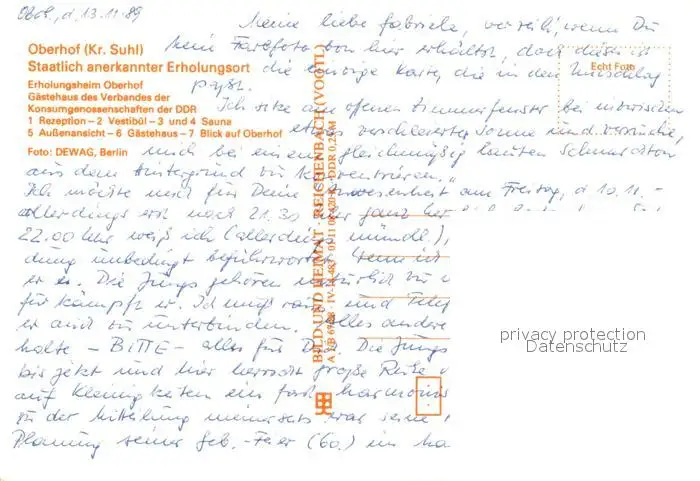 Obh., d. 13.11.89
Meine liebe Gabriele, verzeih, wenn Du
kein Farbfoto von hier erhältst, doch dies ist
die einzige Karte, die in den Umschlag
paßt.
Oberhof (Kr. Suhl)
Staatlich anerkannter Erholungsort
Erholungsheim Oberhof
Gästehaus des Verbandes der
Konsumgenossenschaften der DDR
1 Rezeption – 2 Vestibül – 3 und 4 Sauna
5 Außenansicht – 6 Gästehaus – 7 Blick auf Oberhof
Foto: DEWAG, Berlin
Echt Foto
Ich sitze am offenen Zimmerfenster bei inzwischen
etwas verschleierter Sonne und versuche,
mich bei einem gleichmäßig lauten Schnarchton
aus dem Hintergrund zu konzentrieren.
Ich möchte mich für Deine Anwesenheit am Freitag, d. 10.11. –
allerdings erst nach 21.30 Uhr ganz
22.00 Uhr weiß ich (allerdings mündl.),
dung unbedingt befürwortet
er es. Die Jungs gehören natürlich zu
für kämpft er. Ich muß und
er auch zu unterbinden. Alles andere
halte – BITTE – alles für Dich. Die Jungs
bis jetzt und hier herrscht große Ruhe
auf Kleinigkeiten ein fast harmonis
zu der Mitteilung meinerseits war seine
Planung seiner Geb.-Feier (60.) im
BILD UND HEIMAT · REICHENBACH (VOGTL)
privacy protection
Datenschutz